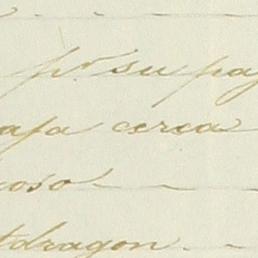 pr. su pa
apa cerca
oso
tdragon